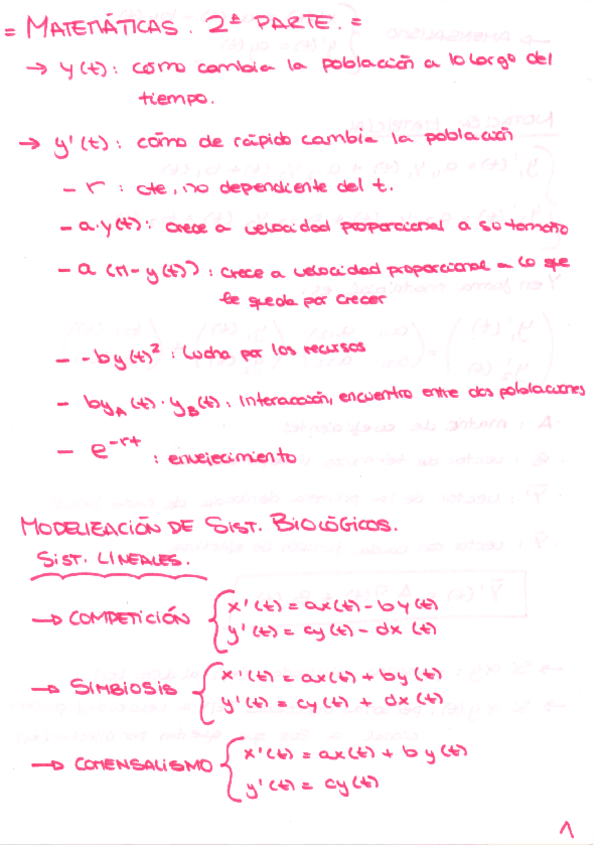 = MATEMÁTICAS. 2ª PARTE. =
→ y(t): cómo cambia la población a lo largo del
tiempo.
→ y'(t): cómo de rápido cambia la población
- r : cte, no dependiente del t.
- a·y(t): crece a velocidad proporcional a su tamaño
- a (M-y(t)): crece a velocidad proporcional a lo que
le queda por crecer
- -by(t)²: Lucha por los recursos
- by_A(t)·y_B(t): Interacción, encuentro entre dos poblaciones
- e^-rt : envejecimiento
MODELIZACIÓN DE SIST. BIOLÓGICOS.
SIST. LINEALES.
→ COMPETICIÓN { x'(t) = ax(t) - by(t)
y'(t) = cy(t) - dx(t)
→ SIMBIOSIS { x'(t) = ax(t) + by(t)
y'(t) = cy(t) + dx(t)
→ COMENSALISMO { x'(t) = ax(t) + by(t)
y'(t) = cy(t)
1